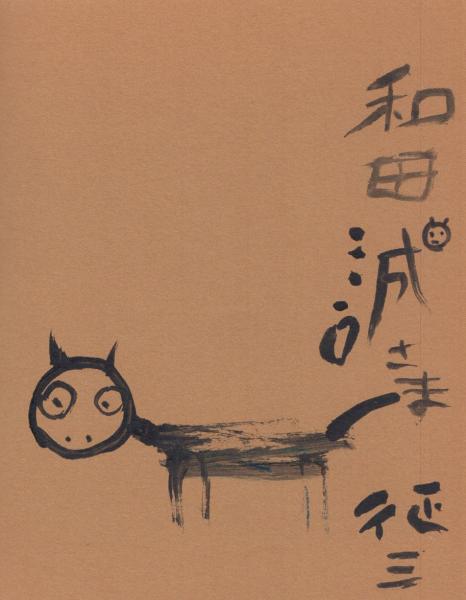 和田誠さま
征三